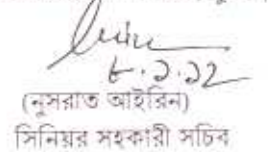 ৮.১.১২
(নুসরাত আইরিন)
সিনিয়র সহকারী সচিব